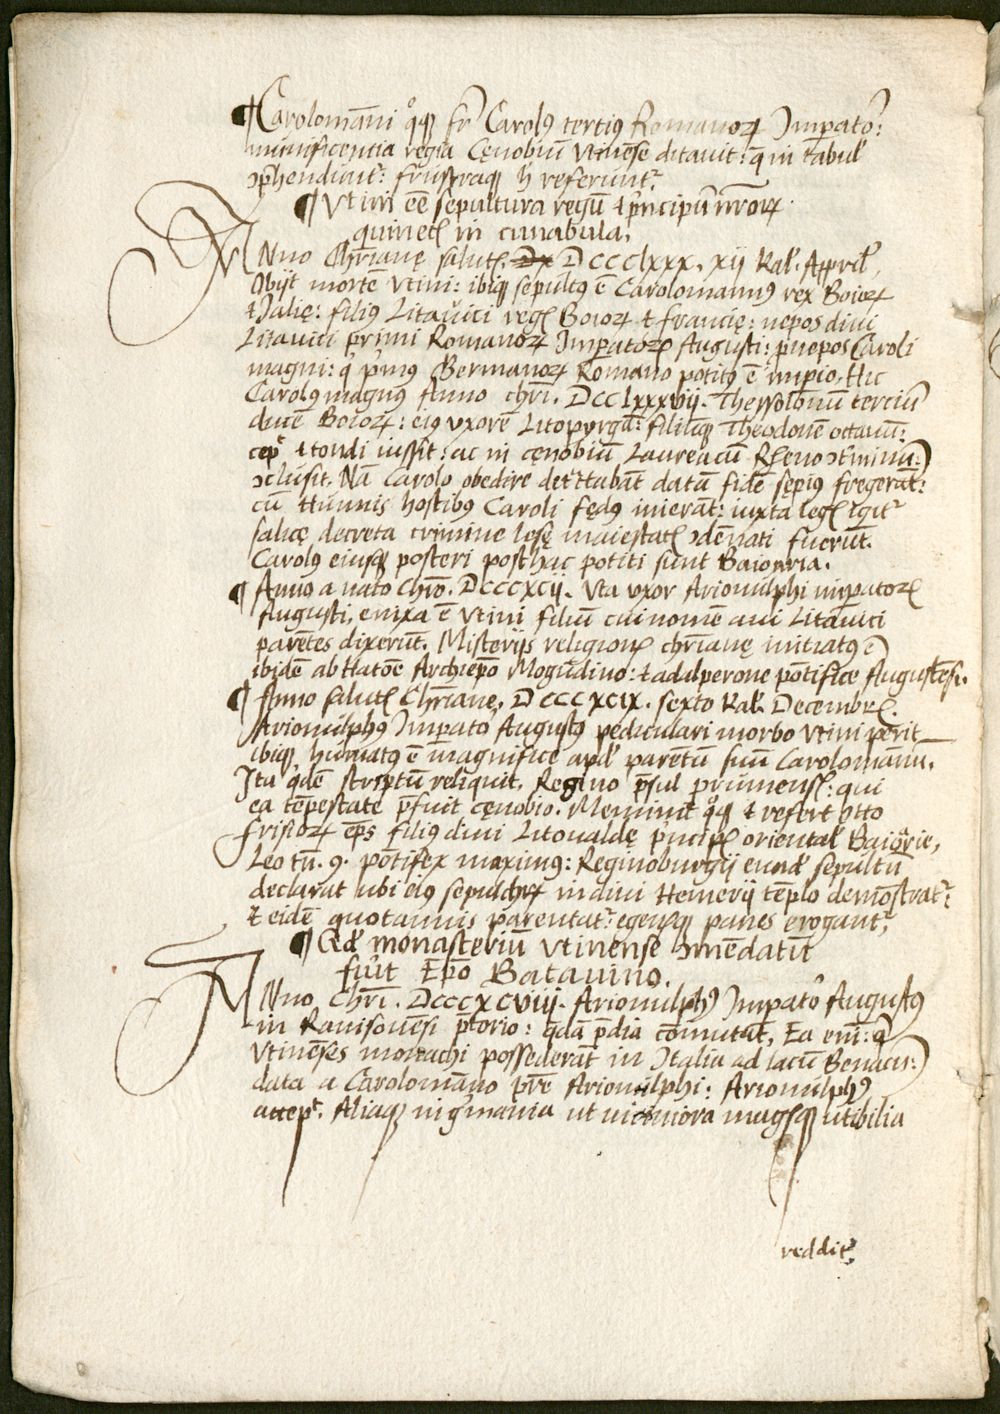 ¶ Carolomāni qͦqꝫ fr̄ Carolꝰ tertiꝰ Romanoꝝ Imꝑatoꝛ:
munificentia regia Cęnobiū Vtinēse ditauit: q̄ in tabul
ↄp̄hendiūt: frustraqꝫ h̄ referunt.
¶ Vtini eē sepultura regū ⁊ prīcipū nr̄oꝝ
quinetꝭ in cunabula.
ANno Chr̄ianę salutꝭ DCCClxxx. xij Kal. April.
Obijt mortē Vtini: ibiqꝫ sepultꝰ ē Carolomannꝰ rex Boioꝝ
⁊ Italię: filiꝰ Litauici regꝭ Boioꝝ ⁊ francię: nepos diui
Litauici primi Romanoꝝ Imꝑatorꝭ Augusti: ꝓnepos Caroli
magni: q̇ prīꝰ Germanoꝝ Romano potitꝰ ē imꝑio. Hic
Carolꝰ magnus Anno chrī. DCClxxxvij. Thessolonū terciū
ducē Boioꝝ: eiꝰ vxorē Litopyrgā: filiūqꝫ Theodonē octauū:
cepͭ ⁊ tondi iussit: ac in cęnobiū Laureacū Rheno ↄt̄minū
ↄclusit. Nā Carolo obedire det̄ctabāt datā fidē sępius fregerāt:
cū Hunnis hostibꝰ Caroli fędus inierāt: iuxta legꝭ igit
salicę decreta crimine lesę maiestatꝭ ↄdēnati fuerūt.
Carolꝰ eiusqꝫ posteri posthac potiti sunt Baioaria.
¶ Anno a nato Chrō. DCCCXCij. Vta vxor Arionulphi imꝑatorꝭ
Augusti, enixa ē Vtini filiū cui nomē aui Litauici
parētes dixerūt. Misterijs religionꝭ chr̄ianę initiatꝰ ē
ibidē ab Hatōe Archiepō Mogūdino: ⁊ adulperone pōtifice Augustēsi.
¶ Anno salutꝭ Chr̄ianę. DCCCXCIX. sexto Kal. Decembrꝭ.
Arionulphꝰ Imꝑatoꝛ Augustꝰ pediculari morbo Vtini perit
ibiqꝫ humatꝰ ē magnifice apd parētū suū Carolomānū.
Ita qdē scriptū reliquit. Regino p̄sul prumensꝭ: qui
ea tēpestate p̄fuit cęnobio. Meminit qͦqꝫ ⁊ refert Otto
frisioꝝ ēps filiꝰ diui Litoualdę p̄ncipꝭ oriental Baioarię,
Leo tū. 9. pōtifex maximꝰ: Reginoburgij eund sepultū
declarat ubi eiꝰ sepulchrꝝ in diui Hemerij tēplo demōstrat:
⁊ eidē quotannis parentat: egenisqꝫ panes erogant.
¶ Qd monasteriū Vtinense ↄmēdatū
fuit Epō Batauino.
ANno Chrī. DCCCXCViij. Arionulphꝰ Imꝑatoꝛ Augustꝰ
in Rantsonēsi p̄torio: qdā p̄dia cōmutāt, Ea eni: q
Vtinēses monachi possederāt in Italia ad lacū Benacū:
data a Carolomāno pr̄e Arionulphi: Arionulphꝰ
accepͭ. Aliaqꝫ in gm̄ania ut uiciniora magisqꝫ utibilia
reddit,